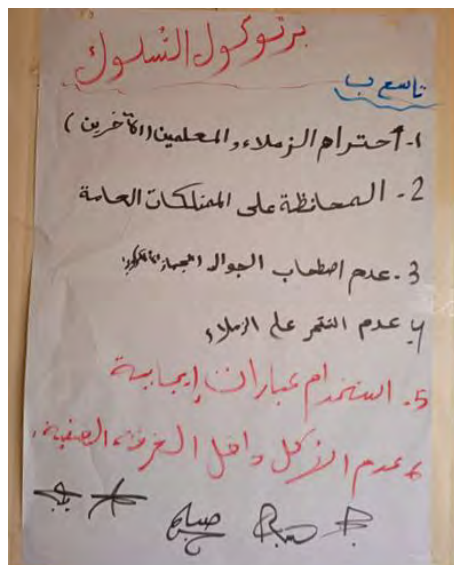 برتوكول السلوك
تاسع ب
1- احترام الزملاء والمعلمين (الآخرين)
2- المحافظة على الممتلكات العامة
3- عدم اصطحاب الجوال
4 عدم التنمر على الزملاء
5- استخدام عبارات إيجابية
6 عدم الأكل داخل الغرفة الصفية.